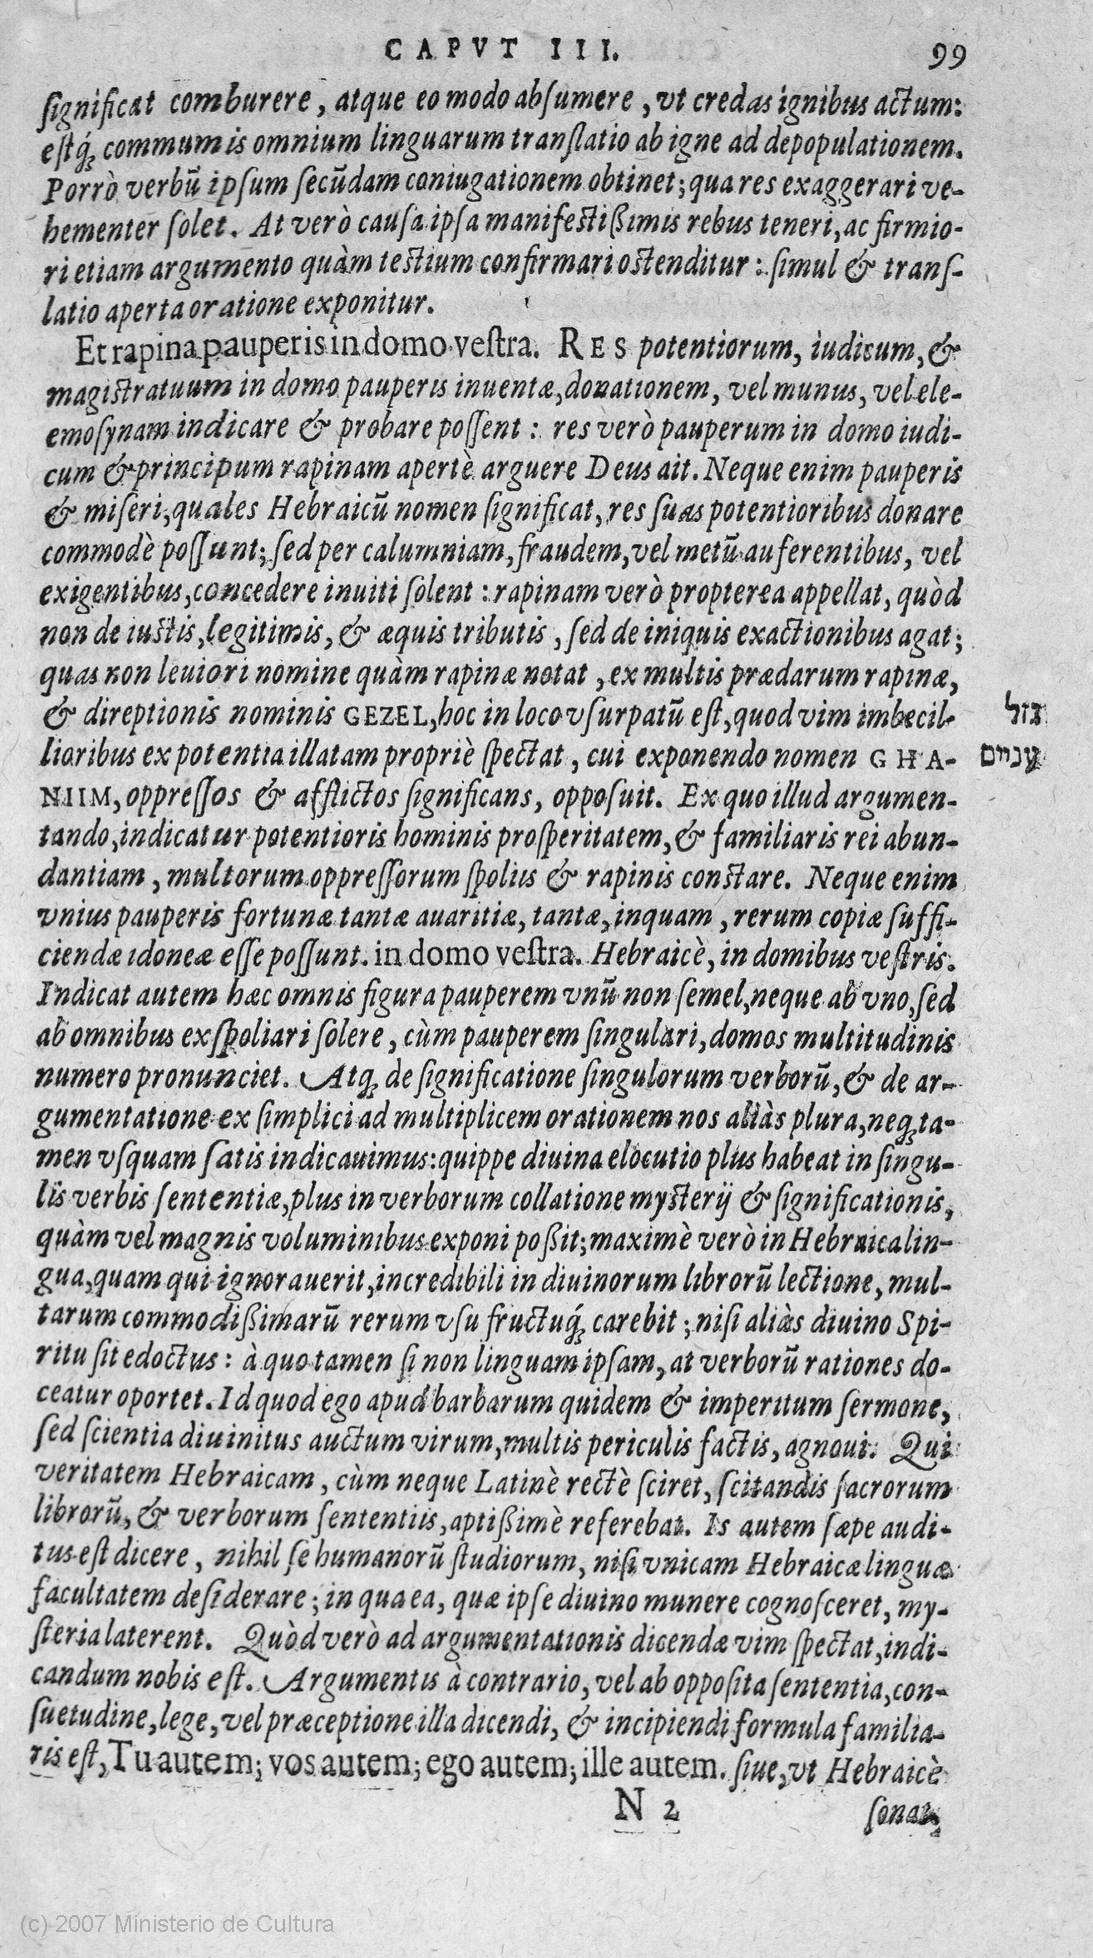 CAPVT III. 99
ſignificat comburere, atque eo modo abſumere, vt credas ignibus actum:
eſtq́; communis omnium linguarum tranſlatio ab igne ad depopulationem.
Porrò verbū ipſum ſecūdam coniugationem obtinet; qua res exaggerari ve-
hementer ſolet. At verò cauſa ipſa manifeſtißimis rebus teneri, ac firmio-
ri etiam argumento quàm teſtium confirmari oſtenditur: ſimul & tranſ-
latio aperta oratione exponitur.
Et rapina pauperis in domo veſtra. RES potentiorum, iudicum, &
magiſtratuum in domo pauperis inuentæ, donationem, vel munus, vel ele-
emoſynam indicare & probare poſſent: res verò pauperum in domo iudi-
cum & principum rapinam apertè arguere Deus ait. Neque enim pauperis
& miſeri, quales Hebraicū nomen ſignificat, res ſuas potentioribus donare
commodè poſſunt; ſed per calumniam, fraudem, vel metū auferentibus, vel
exigentibus, concedere inuiti ſolent: rapinam verò propterea appellat, quòd
non de iuſtis, legitimis, & æquis tributis, ſed de iniquis exactionibus agat;
quas non leuiori nomine quàm rapinæ notat, ex multis prædarum rapinæ,
& direptionis nominis GEZEL, hoc in loco vſurpatū eſt, quod vim imbecil- גזל
lioribus ex potentia illatam propriè ſpectat, cui exponendo nomen GHA- עניים
NIIM, oppreſſos & afflictos ſignificans, oppoſuit. Ex quo illud argumen-
tando, indicatur potentioris hominis proſperitatem, & familiaris rei abun-
dantiam, multorum oppreſſorum ſpoliis & rapinis conſtare. Neque enim
vnius pauperis fortunæ tantæ auaritiæ, tantæ, inquam, rerum copiæ ſuffi-
ciendæ idoneæ eſſe poſſunt. in domo veſtra. Hebraicè, in domibus veſtris.
Indicat autem hæc omnis figura pauperem vnū non ſemel, neque ab vno, ſed
ab omnibus exſpoliari ſolere, cùm pauperem ſingulari, domos multitudinis
numero pronunciet. Atq; de ſignificatione ſingulorum verborū, & de ar-
gumentatione ex ſimplici ad multiplicem orationem nos aliàs plura, neq; ta-
men vſquam ſatis indicauimus: quippe diuina elocutio plus habeat in ſingu-
lis verbis ſententiæ, plus in verborum collatione myſterij & ſignificationis,
quàm vel magnis voluminibus exponi poßit; maximè verò in Hebraica lin-
gua, quam qui ignorauerit, incredibili in diuinorum librorū lectione, mul-
tarum commodißimarū rerum vſu fructuq́; carebit; niſi aliàs diuino Spi-
ritu ſit edoctus: à quo tamen ſi non linguam ipſam, at verborū rationes do-
ceatur oportet. Id quod ego apud barbarum quidem & imperitum ſermone,
ſed ſcientia diuinitus auctum virum, multis periculis factis, agnoui. Qui
veritatem Hebraicam, cùm neque Latinè rectè ſciret, ſcitandis ſacrorum
librorū, & verborum ſententiis, aptißimè referebat. Is autem ſæpe audi-
tus eſt dicere, nihil ſe humanorū ſtudiorum, niſi vnicam Hebraicæ linguæ
facultatem deſiderare; in qua ea, quæ ipſe diuino munere cognoſceret, my-
ſteria laterent. Quòd verò ad argumentationis dicendæ vim ſpectat, indi-
candum nobis eſt. Argumentis à contrario, vel ab oppoſita ſententia, con-
ſuetudine, lege, vel præceptione illa dicendi, & incipiendi formula familia-
ris eſt, Tu autem; vos autem; ego autem; ille autem. ſiue, vt Hebraicè
N 2 ſonat,
(c) 2007 Ministerio de Cultura